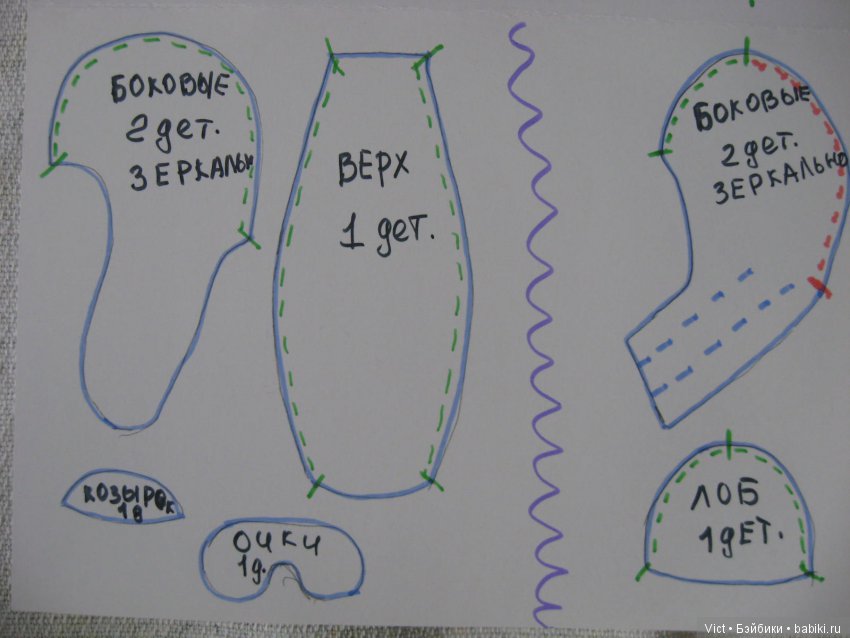 БОКОВЫЕ
2 дет.
ЗЕРКАЛЬН
ВЕРХ
1 дет.
КОЗЫРЕК
1д
ОЧКИ
1д.
БОКОВЫЕ
2 дет.
ЗЕРКАЛЬНО
ЛОБ
1 дЕТ.
Vict • Бэйбики • babiki.ru